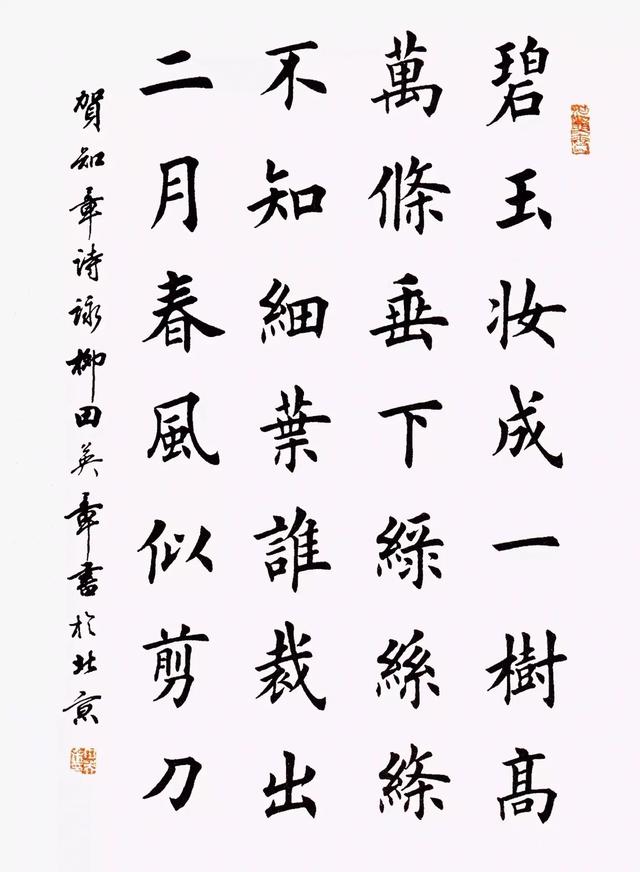 碧玉妝成一樹高
萬條垂下綠絲絛
不知細葉誰裁出
二月春風似剪刀
賀知章詩詠柳田英章書於北京